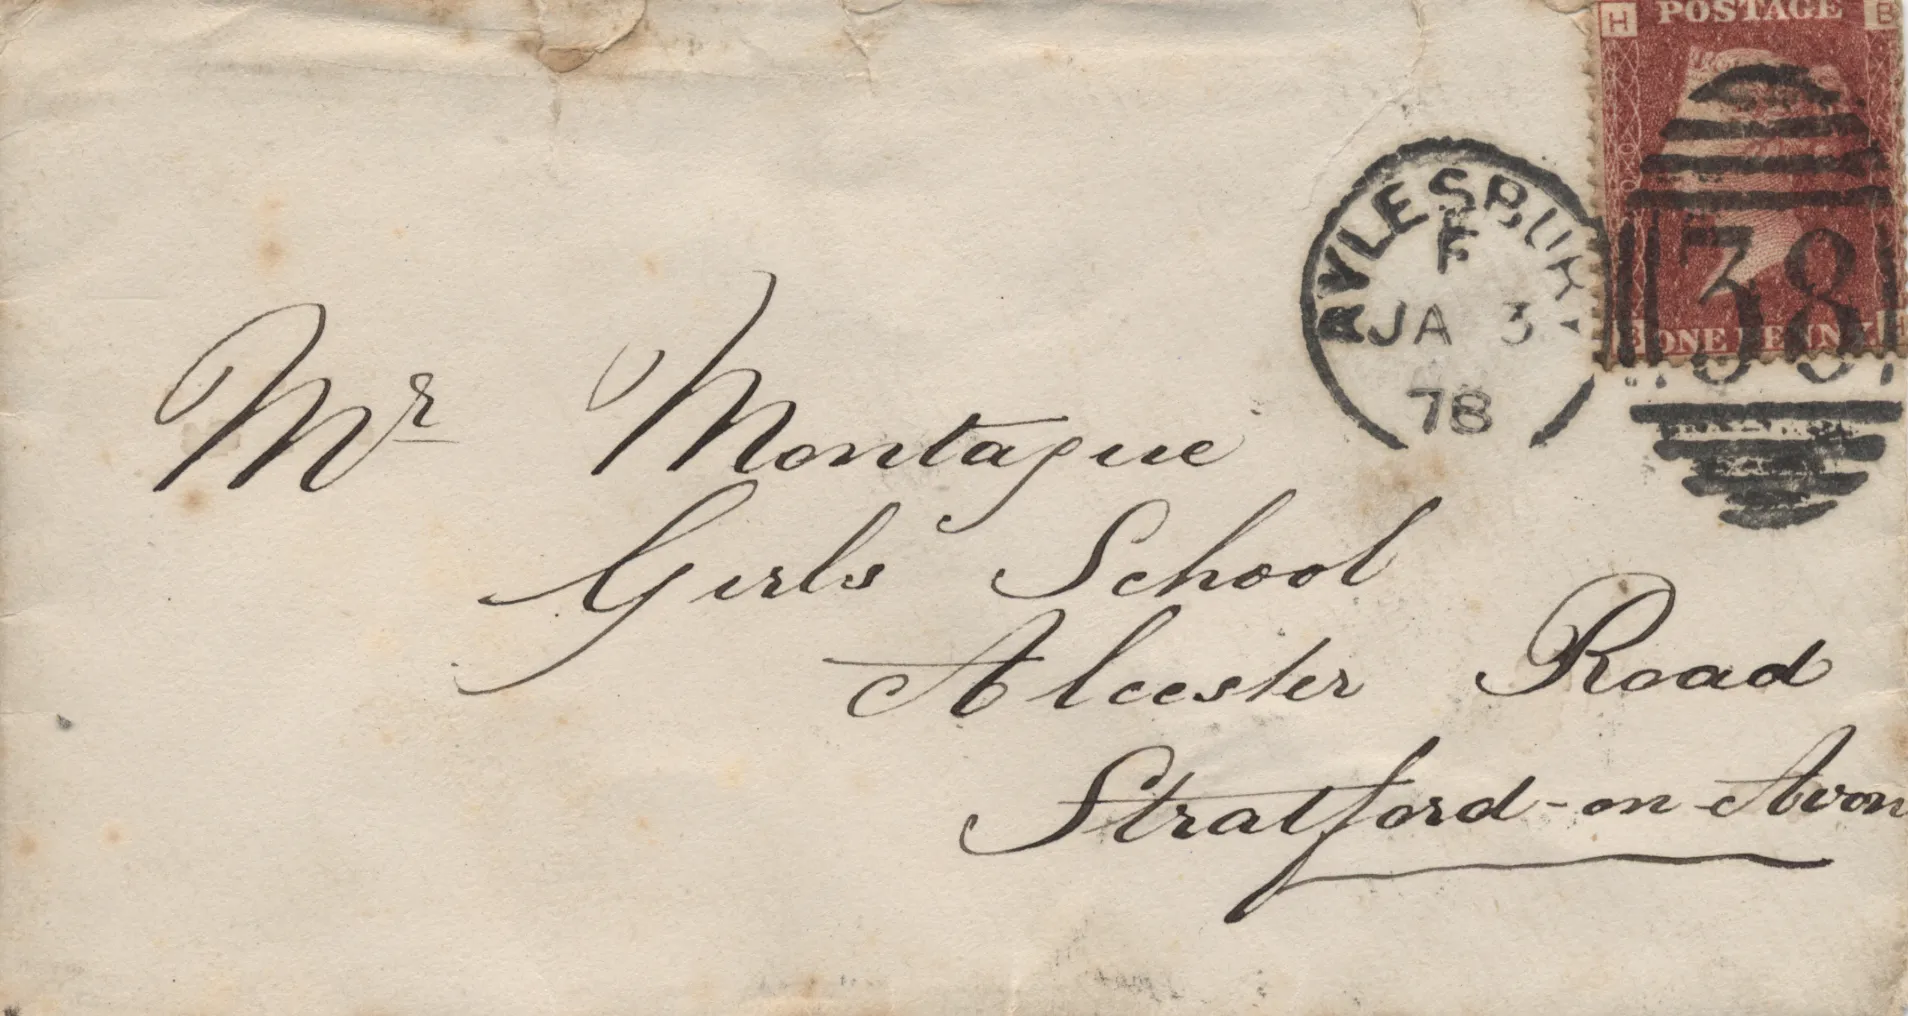 H POSTAGE B
AYLESBURY
F
JA 3
78
38
ONE PENNY
Mr Montague
Girls School
Alcester Road
Stratford-on-Avon